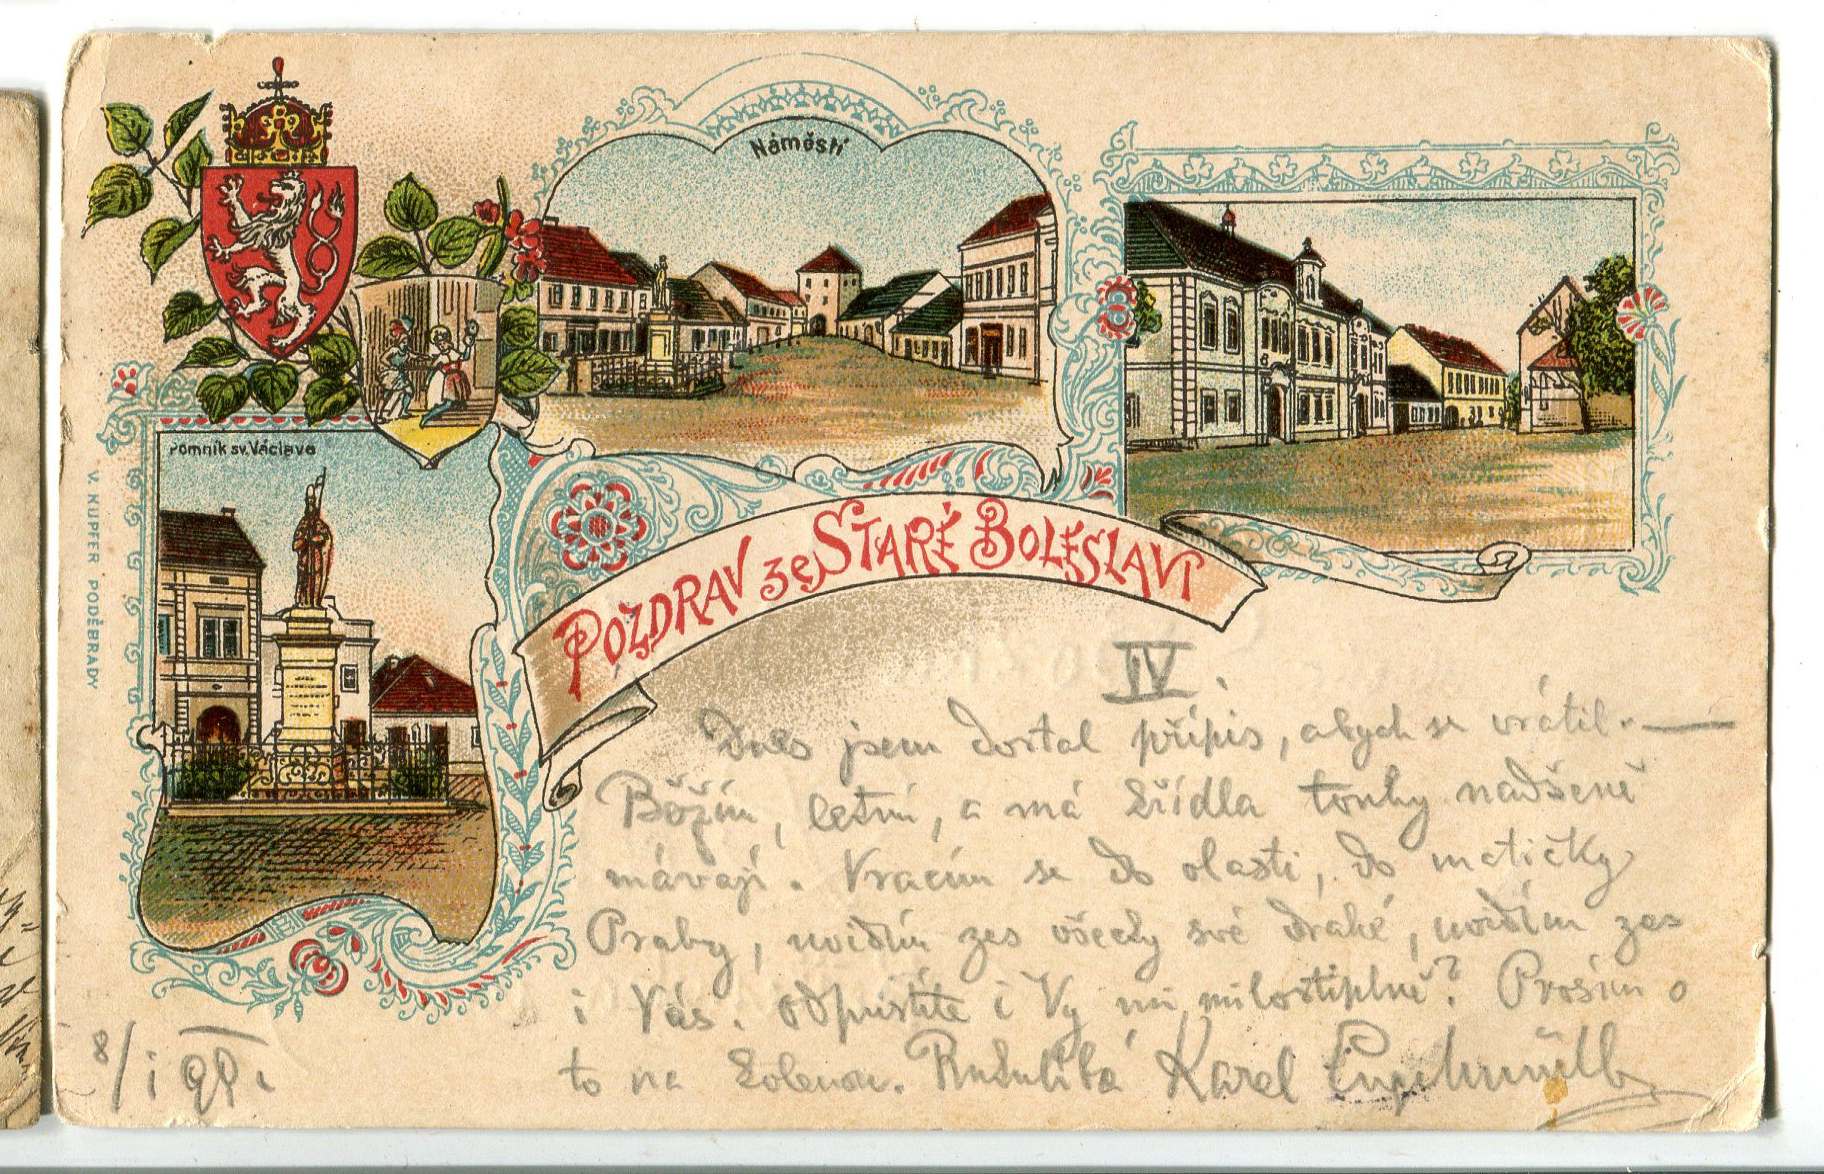 Náměstí
Pomník sv. Václava
V. KUPFER PODĚBRADY
POZDRAV ze STARÉ BOLESLAVI
IV.
Dnes jsem dostal přípis, abych se vrátil. —
letní, a má křídla touhy nadšeně
mávají. Vracím se do vlasti, do matičky
Prahy, uvidím zas všecky své drahé, uvidím zas
i Vás. Odpustíte i Vy mi milostiplně? Prosím o
to na kolenou. Karel
8/I 98.